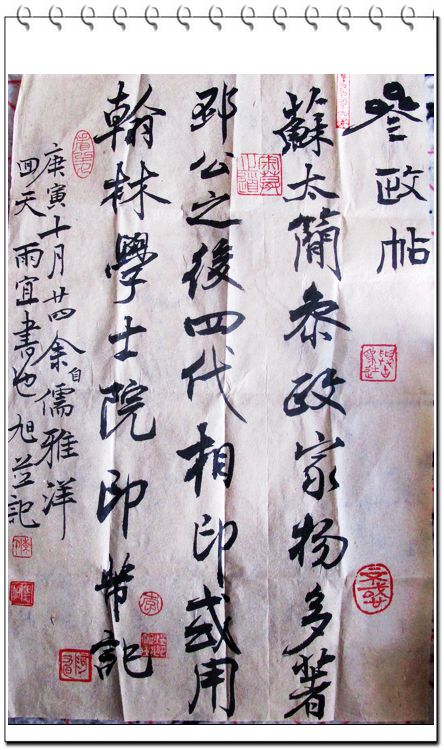 参政帖
蘇太簡叅政家物多著
邳公之後四代相印或用
翰林學士院印芾記
庚寅十月廿四余自儒雅洋
回天雨宜書也旭記